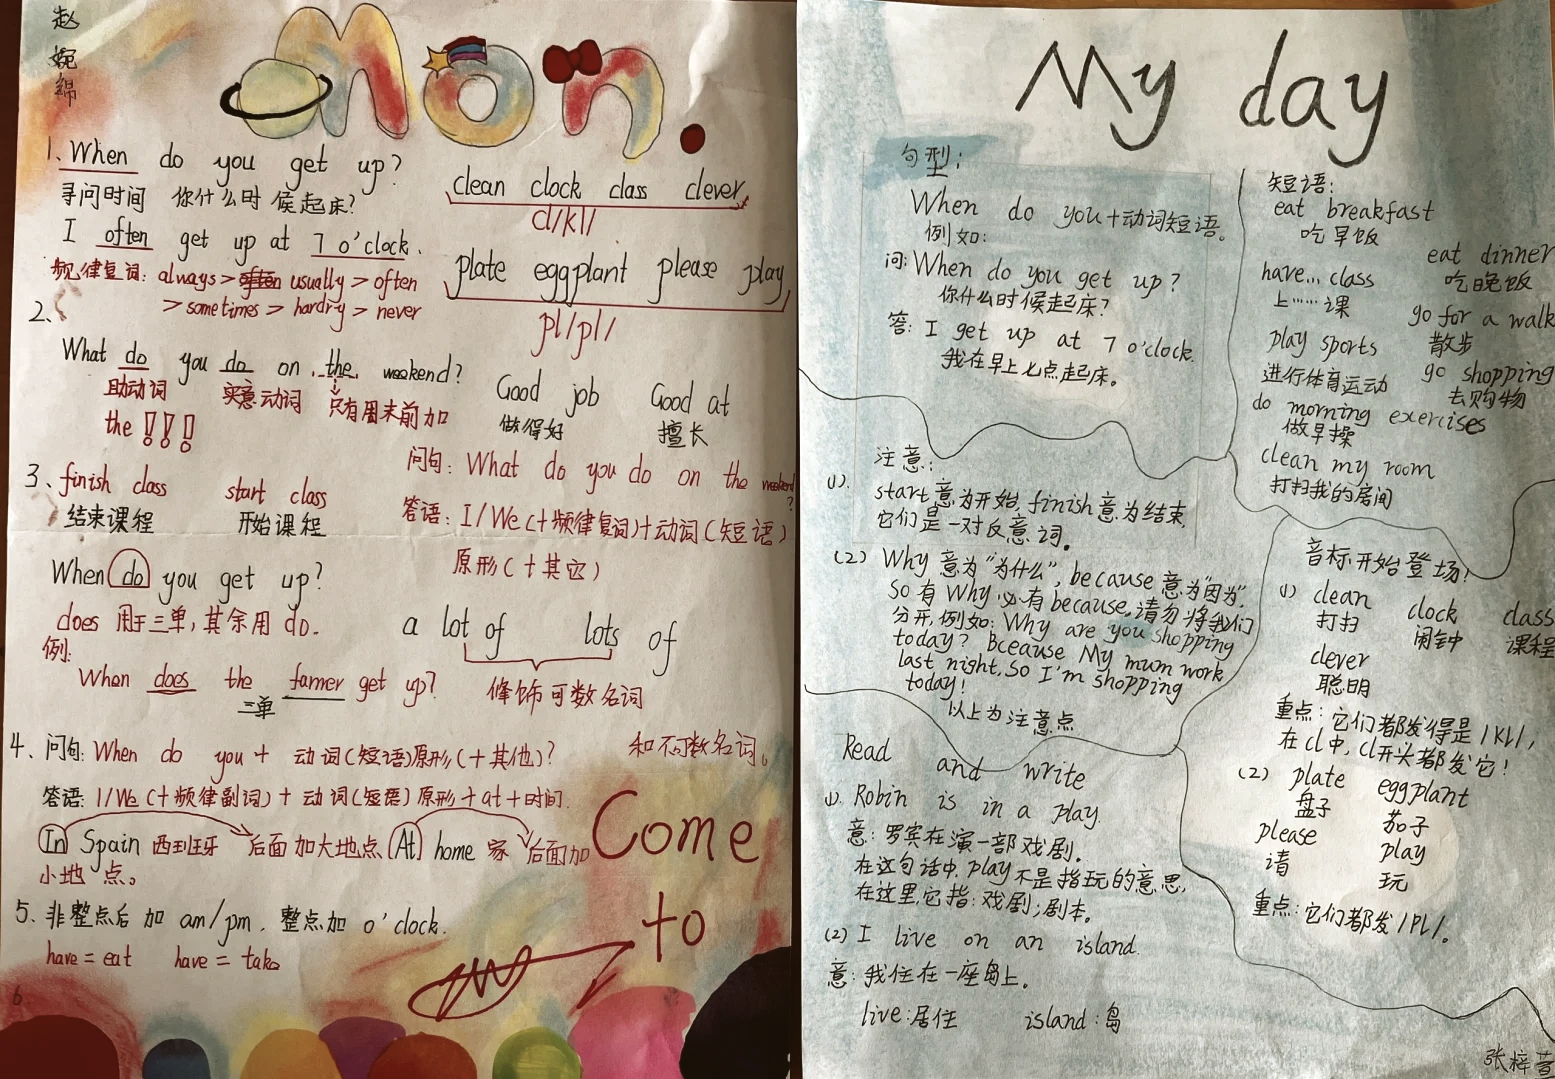 赵
婉
锦
Mon.
1、When do you get up?
寻问时间 你什么时候起床?
I often get up at 7 o'clock.
频律复词: always > usually > often
> sometimes > hardry > never
clean clock class clever
cl/kl/
plate eggplant please play
pl/pl/
2、
What do you do on the weekend?
助动词 实意动词 只有周末前加
the !!!
Good job Good at
做得好 擅长
问句: What do you do on the weekend?
答语: I/We (+频律复词)+动词(短语)
原形(+其它)
3、finish class start class
结束课程 开始课程
When do you get up?
does 用于三单,其余用 do.
例:
When does the farmer get up?
三单
a lot of lots of
修饰可数名词
和不可数名词。
4、问句: When do you + 动词(短语)原形(+其他)?
答语: I/We (+频律副词)+动词(短语)原形+at+时间.
In Spain 西班牙 后面加大地点 At home 家 后面加
小地点。
5、非整点后加 am/pm. 整点加 o'clock.
have = eat have = take
6
Come
to
My day
句型:
When do you+动词短语。
例如:
问: When do you get up?
你什么时候起床?
答: I get up at 7 o'clock.
我在早上七点起床。
短语:
eat breakfast
吃早饭
eat dinner
吃晚饭
have... class
上……课
go for a walk
散步
play sports
进行体育运动
go shopping
去购物
do morning exercises
做早操
clean my room
打扫我的房间
注意:
(1).
start意为开始,finish意为结束,
它们是一对反意词。
(2) Why 意为"为什么", because意为"因为",
So 有 Why 必有 because,请勿将我们
分开,例如: Why are you shopping
today? Bceause My mum work
last night, So I'm shopping
today!
以上为注意点
音标开始登场!
(1) clean clock class
打扫 闹钟 课程
clever
聪明
重点: 它们都发得是/KL/,
在cl中, cl开头都发它!
(2) plate eggplant
盘子 茄子
please play
请 玩
重点: 它们都发/PL/。
Read and write
(1). Robin is in a play.
意: 罗宾在演一部戏剧。
在这句话中, play不是指玩的意思,
在这里,它指: 戏剧;剧本。
(2) I live on an island.
意: 我住在一座岛上。
live:居住 island:岛
张梓萱